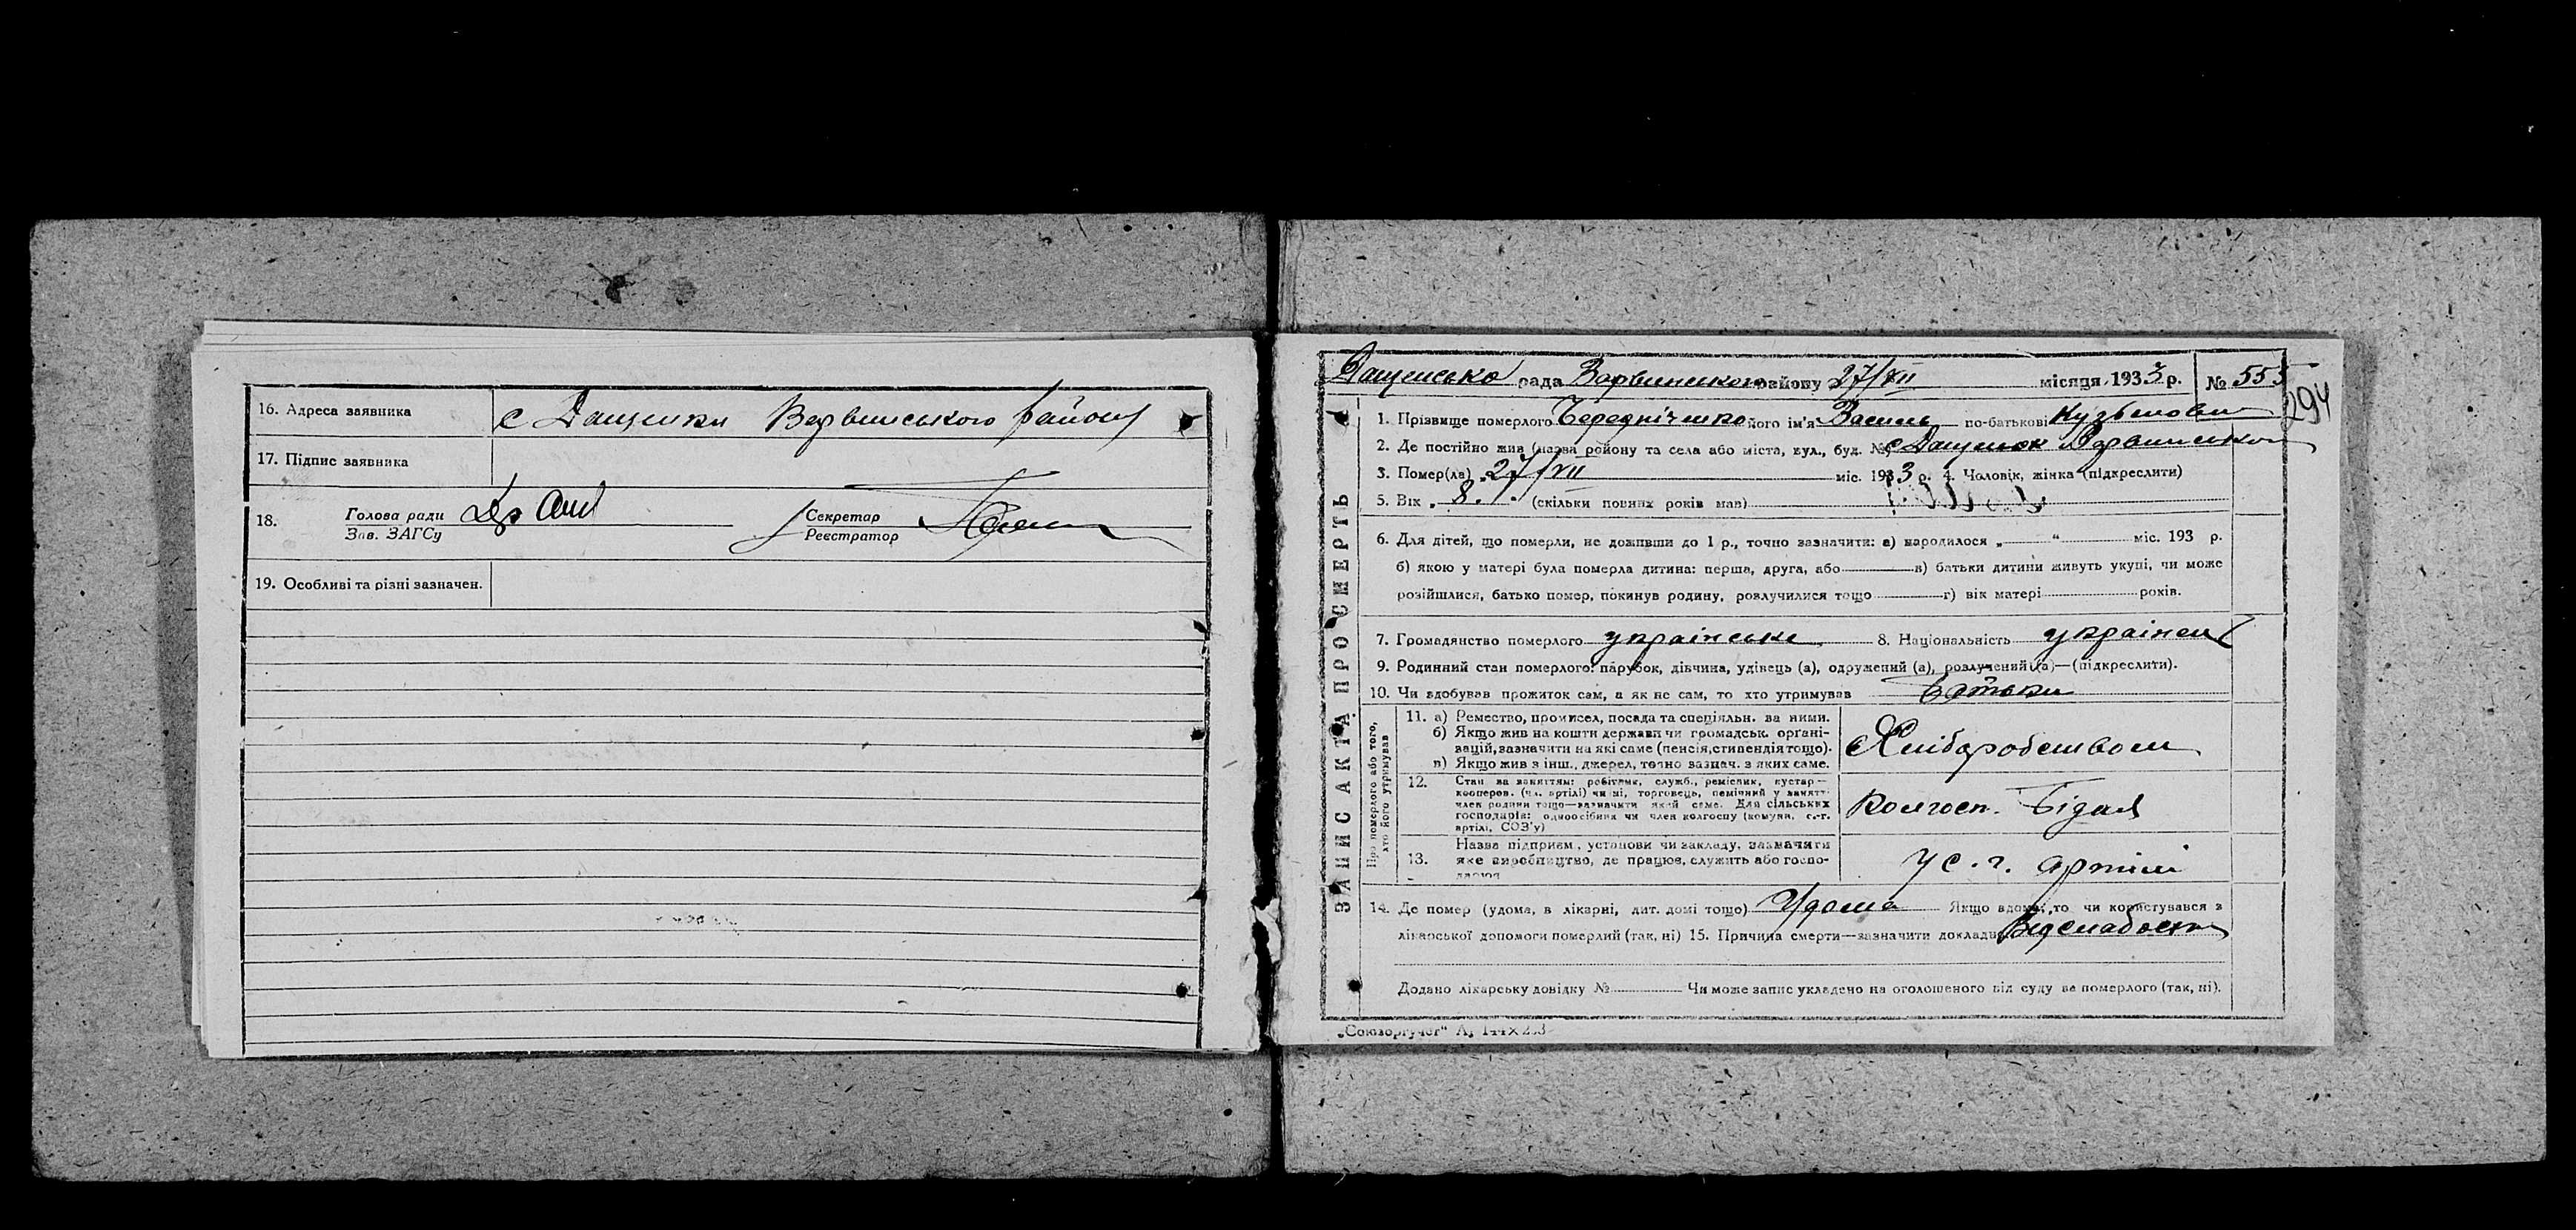 16. Адреса заявника с Дащенки Варвинського району
17. Підпис заявника
18. Голова ради Секретар
Зав. ЗАГСу Реєстратор
19. Особливі та різні зазначен.
Дащенсько рада Варвинського району 27/VII місяця 1933 р. № 555
294
ЗАПИС АКТА ПРО СМЕРТЬ
1. Прізвище померлого Чередніченко його ім'я Василь по-батькові Кузьмович
2. Де постійно жив (назва району та села або міста, вул., буд. № с Дащенок Варвинсько
3. Помер(ла) 27/VII міс. 1933 р. 4. Чоловік, жінка (підкреслити)
5. Вік „ 8. (скільки повних років мав)
6. Для дітей, що померли, не доживши до 1 р., точно зазначити: а) народилося „ “ міс. 193 р.
б) якою у матері була померла дитина: перша, друга, або в) батьки дитини живуть укупі, чи може
розійшлися, батько помер, покинув родину, розлучилися тощо г) вік матері років.
7. Громадянство померлого українське 8. Національність українец
9. Родинний стан померлого: парубок, дівчина, удівець (а), одружений (а), розлучений (а)—(підкреслити).
10. Чи здобував прожиток сам, а як не сам, то хто утримував Батьки
Про померлого або того,
хто його утримував
11. а) Ремество, промисел, посада та спеціяльн. за ними.
б) Якщо жив на кошти держави чи громадськ. органі-
зацій, зазначити на які саме (пенсія, стипендія тощо).
в) Якщо жив з інш., джерел, точно зазнач. з яких саме.
Хліборобством
12. Стан за заняттям: робітник, служб., ремісник, кустар—
кооперов. (чл. артілі) чи ні, торговець, помічний у занятт.
член родини тощо—зазначити який саме. Для сільських
господарів: одноосібник чи член колгоспу (комуни, с.-г.
артілі, СОЗ'у)
Колгосп. Бідня
13. Назва підприєм., установи чи закладу, зазначити
яке виробництво, де працює, служить або госпо-
дарює
У с. г. артілі
14. Де помер (удома, в лікарні, дит. домі тощо) Удома Якщо вдома, то чи користувався з
лікарської допомоги померлий (так, ні) 15. Причина смерти—зазначити докладн Від слабости
Додано лікарську довідку № Чи може запис укладено на оголошеного від суду за померлого (так, ні).
„Союзоргучет“